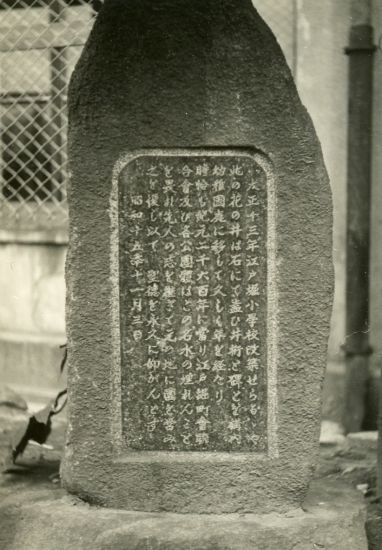 大正十三年江戸堀小学校改築せらるゝや
此の花の井は石にて蓋ひ井桁と碑とを構内
幼稚園庭に移して久しく年を経たり
時恰も紀元二千六百年に當り江戸堀町會聯
合會及び各公團體はこの名水の埋れんこと
を畏れ先人の志を継ぎて元の地に園を営み
之を復し以て 聖徳を永久に仰がんとす
昭和十五年十一月三日